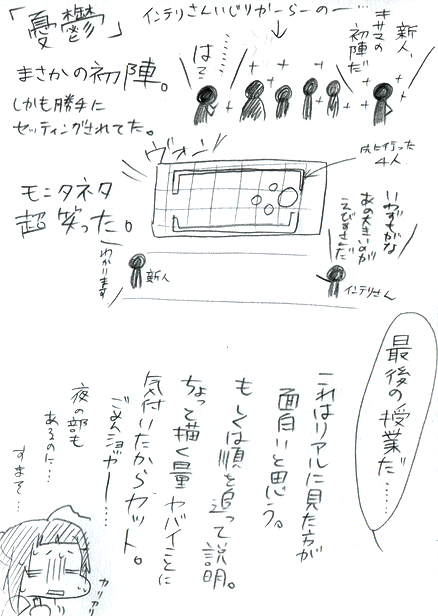 「憂鬱」
まさかの初陣。
しかも勝手に
セッティングされてた。
インテリさんいじりからーの…
新人、
キサマの
初陣だ
………
はて
ヴォン
内に行った
4人
モニタネタ
超笑った。
いわずもがな
あの大きいのが
えびすさんだ
わかります
新人
インテリさん
最後の授業だ……
これはリアルに見た方が
面白いと思う。
もしくは順を追って説明。
ちょって描く量ヤバイことに
気付いたからカット。
ごめんヨジャー……
夜の部も
あるのに…
すまそ…
カリカリ